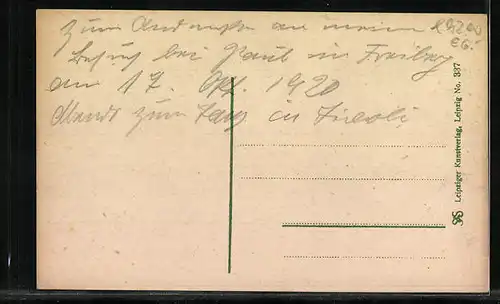 Zum Andenken an meinen
Besuch bei Paul in Freiberg
am 17. Okt. 1920
Abends zum Tanz in Tivoli.
Leipziger Kunstverlag, Leipzig No. 337